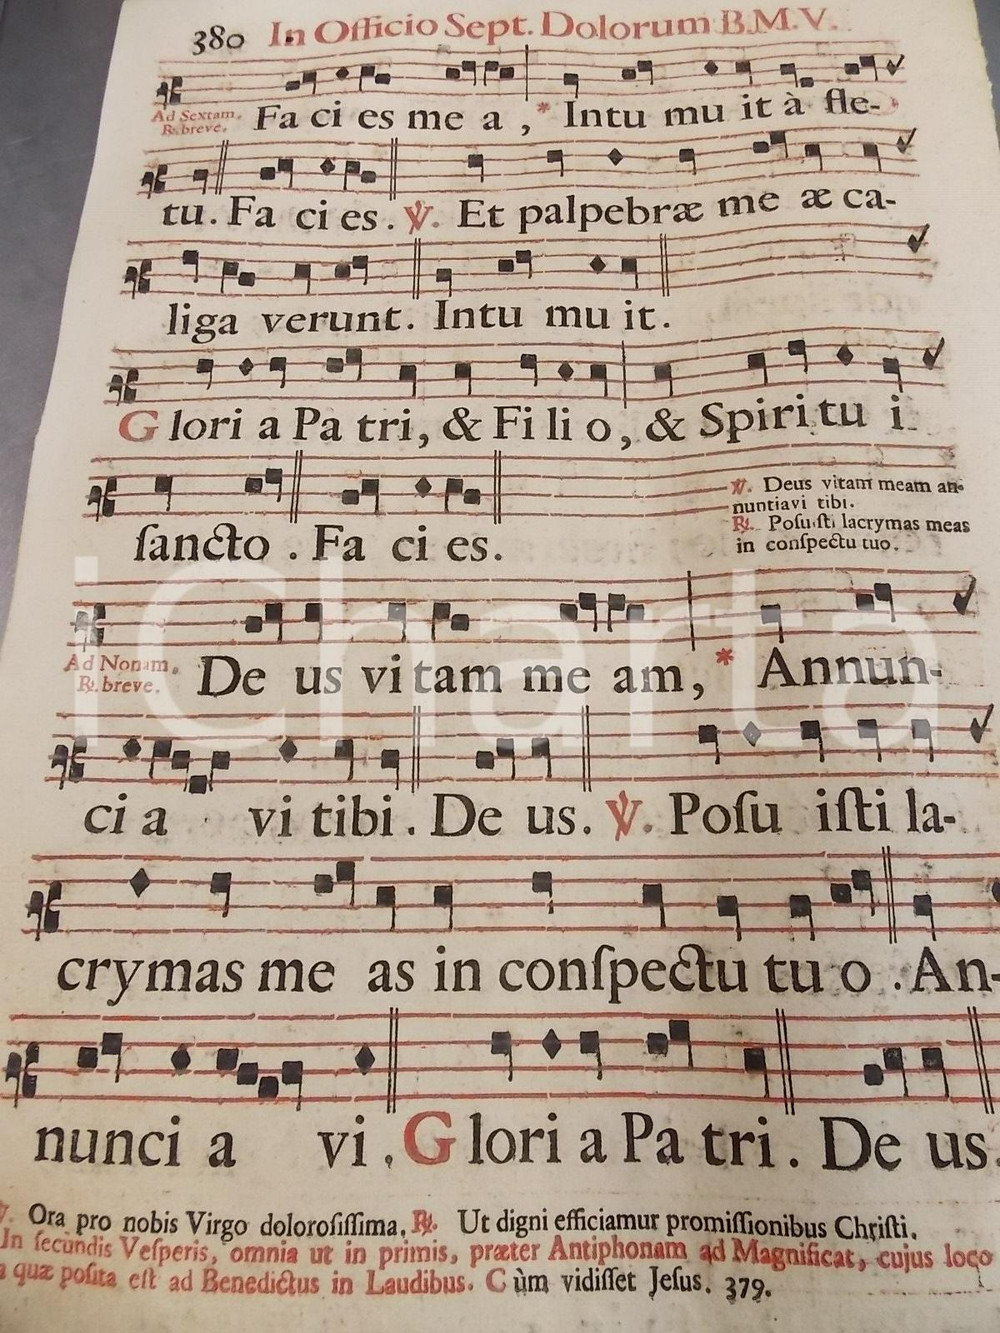 380 In Officio Sept. Dolorum B.M.V.
Ad Sextam.
℟. breve.
Fa ci es me a ,* Intu mu it à fle-
tu. Fa ci es. ℣. Et palpebræ me æ ca-
liga verunt. Intu mu it.
Glori a Pa tri, & Fi li o, & Spiritu i
ſancto . Fa ci es.
℣. Deus vitam meam an-
nuntiavi tibi.
℟. Poſuiſti lacrymas meas
in conſpectu tuo.
iCharta
Ad Nonam.
℟. breve.
De us vi tam me am, * Annun-
ci a vi tibi. De us. ℣. Poſu iſti la-
crymas me as in conſpectu tu o . An-
nunci a vi. Glori a Pa tri. De us.
℣. Ora pro nobis Virgo doloroſiſſima, ℟. Ut digni efficiamur promiſſionibus Chriſti.
In ſecundis Veſperis, omnia ut in primis, præter Antiphonam ad Magnificat, cujus loco
quæ poſita eſt ad Benedictus in Laudibus. Cùm vidiſſet Jeſus. 379.